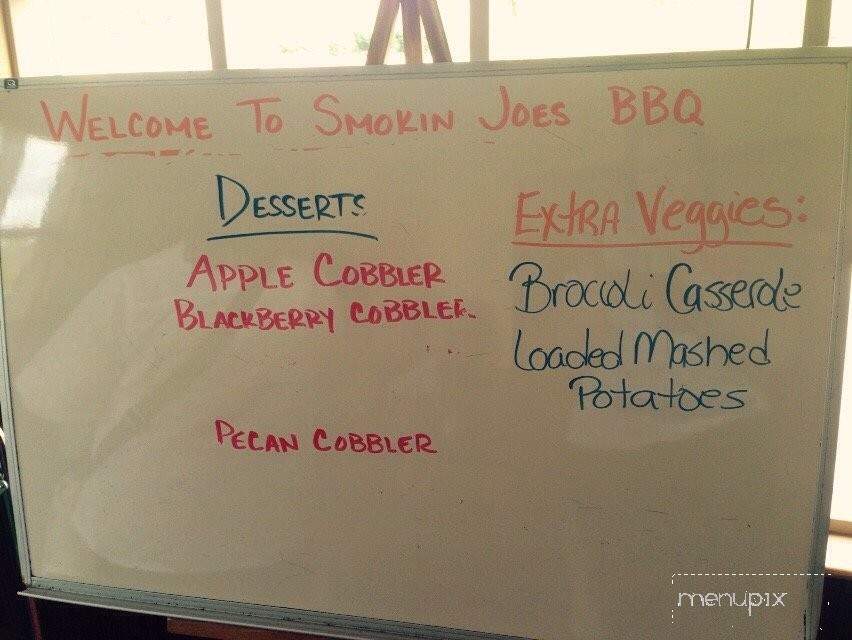 WELCOME TO SMOKIN JOES BBQ
DESSERTS
APPLE COBBLER
BLACKBERRY COBBLER
PECAN COBBLER
EXTRA Veggies:
Broccoli Casserole
Loaded Mashed
Potatoes
menupix